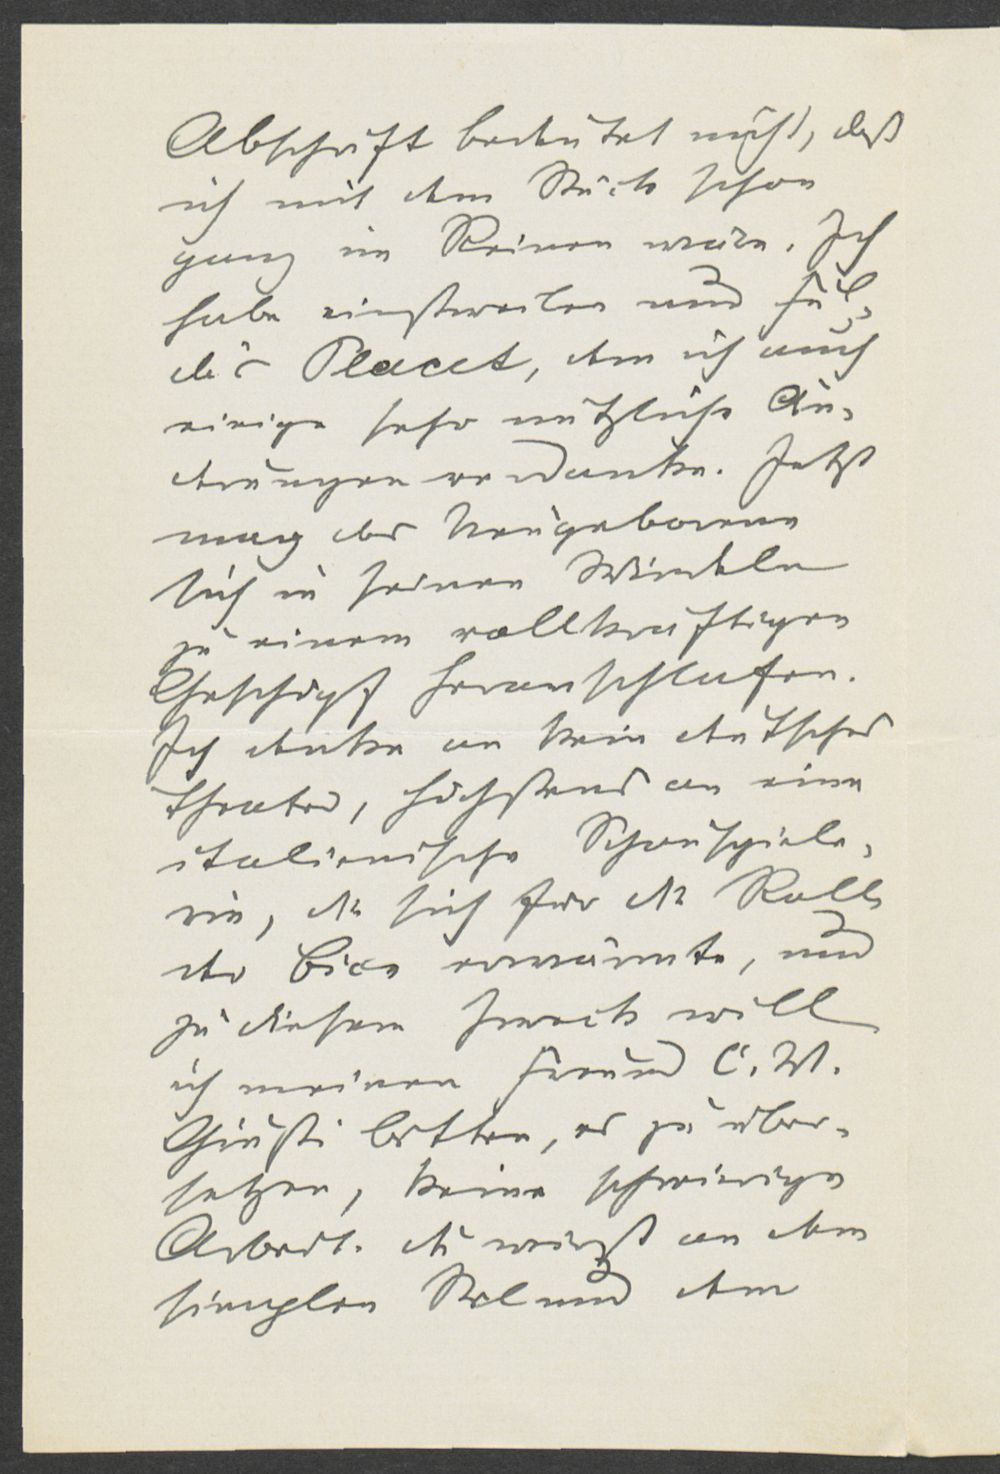 Abschrift bedeutet nicht, daß
ich mit dem Stück schon
ganz im Reinen wäre. Ich
habe einstweilen nur
Placet, dem ich auch
einige sehr nützliche Än-
derungen verdanke. Jetzt
mag das Neugeborene
sich in seinen Windeln
zu einem vollkräftigen
Geschöpf heranschlafen.
Ich denke an kein deutsches
Theater, höchstens an eine
italienische Schauspiele-
rin, die sich für die Rolle
der Bice erwärmte, und
zu diesem Zweck will
ich meinen Freund
Giusti bitten, es zu über-
setzen, keine schwierige
Arbeit. du wirst an dem
simplen Stil und dem